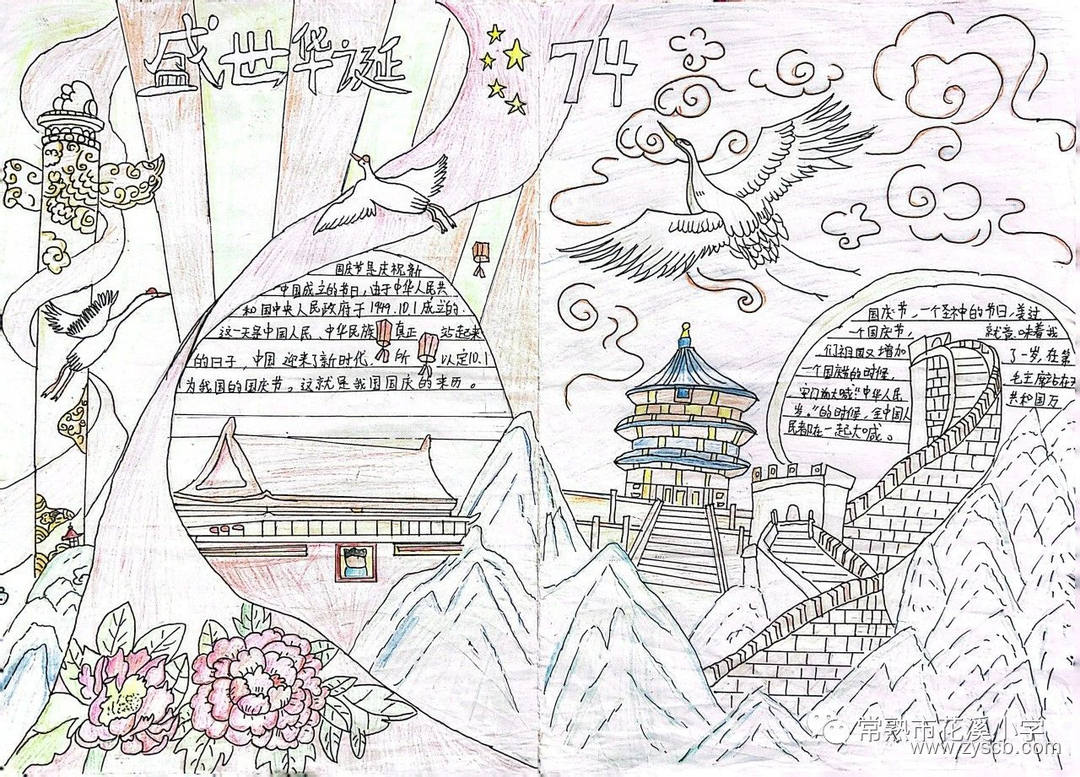 盛世华诞
74
国庆节是庆祝新
中国成立的节日，由于中华人民共
和国中央人民政府于1949.10.1成立的
这一天是中国人民、中华民族真正站起来
的日子，中国迎来了新时代.所以定10.1
为我国的国庆节。这就是我国国庆的来历。
国庆节，一个圣神的节日，美过
一个国庆节，就意味着我
们祖国又增加了一岁，在第
一个国庆的时候，毛主席站在天
安门前大喊："中华人民共和国万
岁。"的时候，全中国人
民都在一起大喊。
常熟市花溪小学
www.zyscb.com